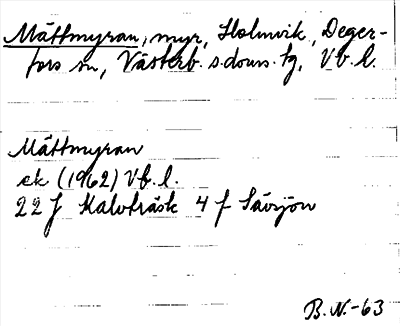 Måttmyran, myr, Holmvik, Deger-
fors sn, Västerb. s. doms. tg, Vb. l.
Måttmyran
ek (1962) Vb. l.
22 J Kalvträsk 4 f Sävsjön
B. N. -63